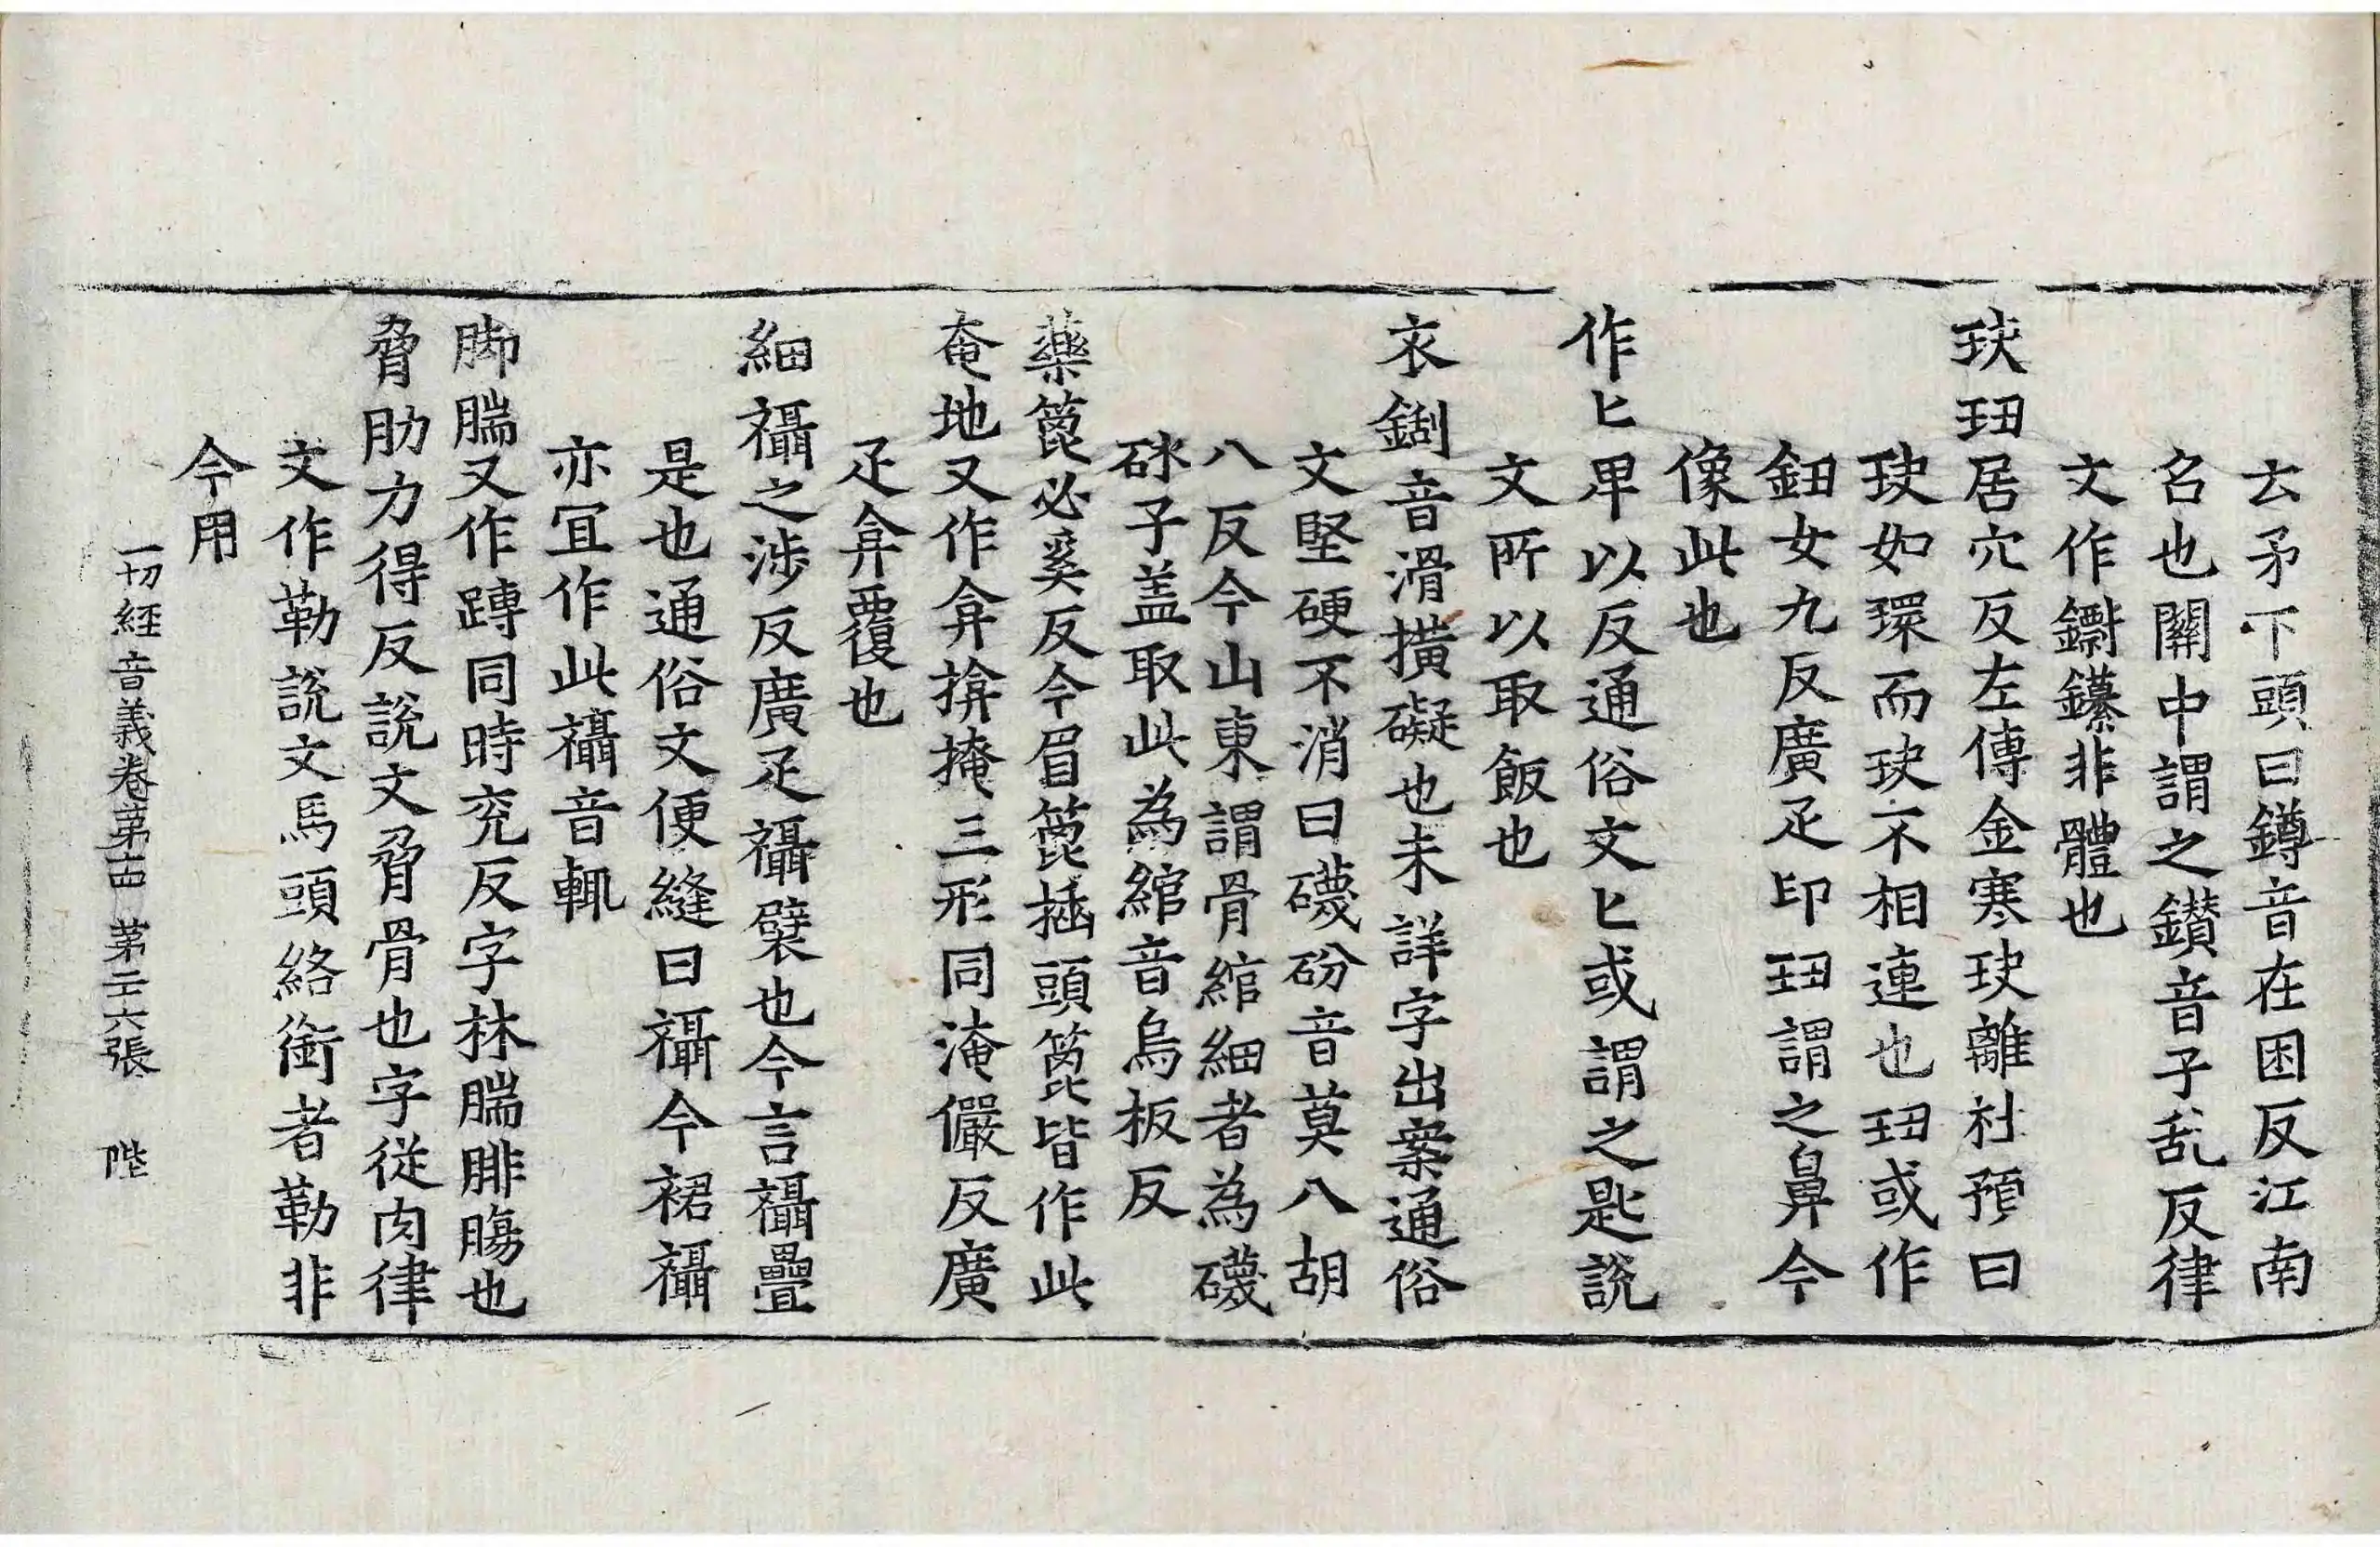 云矛下頭曰鐏音在困反江南
名也關中謂之鑽音子乱反律
文作鑭鑻非體也
玦玾居穴反左傳金寒玦離杜預曰
玦如環而玦不相連也玾或作
鈕女九反廣疋印玾謂之鼻今
像此也
作匕卑以反通俗文匕或謂之匙説
文所以取飯也
衣鎙音滑撗礙也未詳字出案通俗
文堅硬不消曰礣砏音莫八胡
八反今山東謂骨綰細者為礣
砅子盖取此為綰音烏板反
藥篦必奚反今眉篦插頭篦皆作此
奄地又作弇揜掩三形同淹儼反廣
疋弇覆也
細襵之涉反廣疋襵襞也今言襵疊
是也通俗文便縫曰襵今裙襵
亦冝作此襵音輒
脚腨又作䠂同時兖反字林腨腓膓也
脅肋力得反説文脅骨也字從肉律
文作勒説文馬頭絡銜者勒非
今用
一切經音義卷第十四 第二十六張 陛